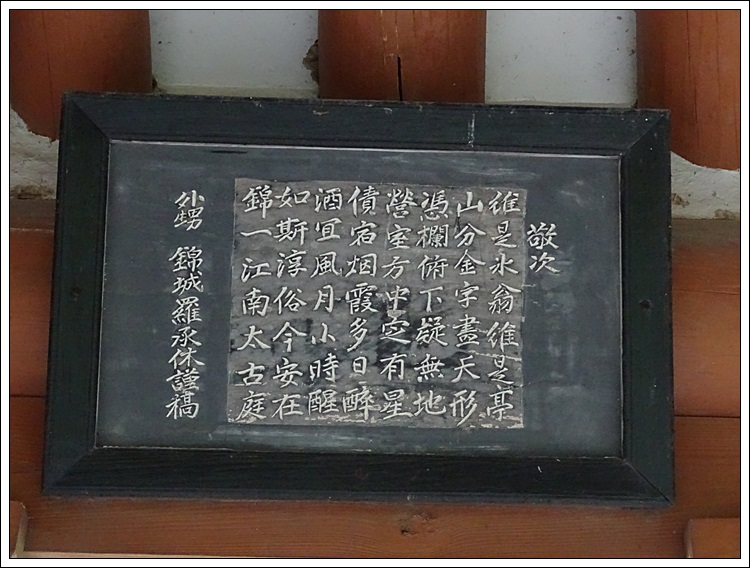 敬次
維是水翁維是亭
山分金字盡天形
憑欄俯下疑無地
營室方中㝎有星
債宿烟霞多日醉
酒宜風月小時醒
如斯淳俗今安在
錦一江南太古庭
外甥 錦城羅承休謹稿